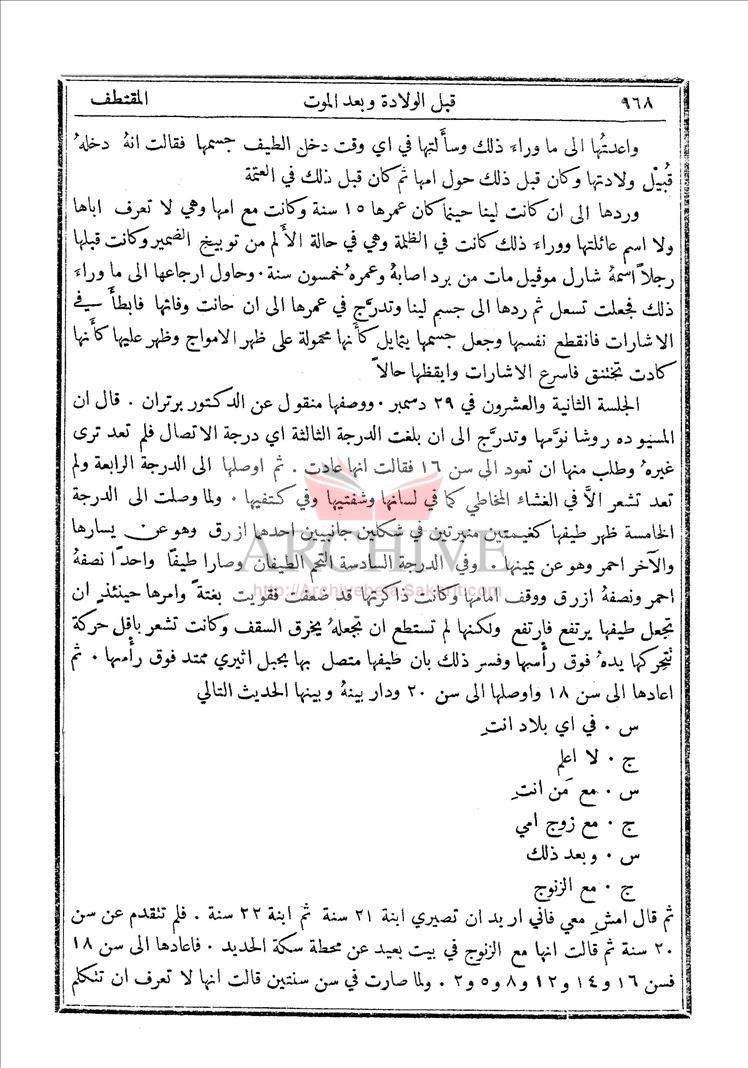 ٩٦٨ قبل الولادة وبعد الموت المقتطف
واعدتُها الى ما وراءَ ذلك وسأَلتها في اي وقت دخل الطيف جسمها فقالت انهُ دخلهُ
قُبيْل ولادتها وكان قبل ذلك حول امها ثم كان قبل ذلك في العتمة
وردها الى ان كانت لينا حينما كان عمرها ١٥ سنة وكانت مع امها وهي لا تعرف اباها
ولا اسم عائلتها ووراءَ ذلك كانت في الظلمة وهي في حالة الأَلم من توبيخ الضمير وكانت قبلها
رجلاً اسمهُ شارل موفيل مات من برد اصابهُ وعمرهُ خمسون سنة ٠ وحاول ارجاعها الى ما وراءَ
ذلك فجعلت تسعل ثم ردها الى جسم لينا وتدرَّج في عمرها الى ان حانت وفاتها فابطأَ في
الاشارات فانقطع نفسها وجعل جسمها يتمايل كأَنها محمولة على ظهر الامواج وظهر عليها كأَنها
كادت تختنق فاسرع الاشارات وايقظها حالاً
الجلسة الثانية والعشرون في ٢٩ دسمبر ٠ ووصفها منقول عن الدكتور برتران . قال ان
المسيو ده روشا نوَّمها وتدرَّج الى ان بلغت الدرجة الثالثة اي درجة الاتصال فلم تعد ترى
غيرهُ وطلب منها ان تعود الى سن ١٦ فقالت انها عادت . ثم اوصلها الى الدرجة الرابعة ولم
تعد تشعر الاَّ في الغشاء المخاطي كما في لسانها وشفتيها وفي كتفيها . ولما وصلت الى الدرجة
الخامسة ظهر طيفها كغيمتين منيرتين في شكلين جانبيين احدهما ازرق وهو عن يسارها
والآخر احمر وهو عن يمينها . وفي الدرجة السادسة التحم الطيفان وصارا طيفاً واحداً نصفهُ
احمر ونصفهُ ازرق ووقف امامها وكانت ذاكرتها قد ضعفت فقويت بغتةً وامرها حينئذٍ ان
تجعل طيفها يرتفع فارتفع ولكنها لم تستطع ان تجعلهُ يخرق السقف وكانت تشعر باقل حركة
تتحركها يدهُ فوق رأسها وفسر ذلك بان طيفها متصل بها بحبل اثيري ممتد فوق رأسها . ثم
اعادها الى سن ١٨ واوصلها الى سن ٢٠ ودار بينهُ وبينها الحديث التالي
س ٠ في اي بلاد انتِ
ج ٠ لا اعلم
س ٠ مع مَن انتِ
ج ٠ مع زوج امي
س ٠ وبعد ذلك
ج ٠ مع الزنوج
ثم قال امشِ معي فاني اريد ان تصيري ابنة ٢١ سنة ثم ابنة ٢٢ سنة . فلم تتقدم عن سن
٢٠ سنة ثم قالت انها مع الزنوج في بيت بعيد عن محطة سكة الحديد ٠ فاعادها الى سن ١٨
فسن ١٦ و١٤ و١٢ و٨ و٥ و٢ ٠ ولما صارت في سن سنتين قالت انها لا تعرف ان تتكلم
ARCHIVE
http://Archivebeta.Sakhrit.com